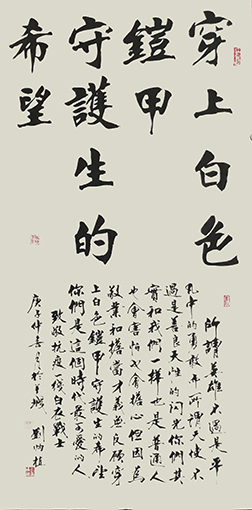 穿上白色
鎧甲
守護生的
希望
所謂英雄不過是平
凡中的勇敢所謂天使不
過是善良天性的閃光你們其
實和我們一樣也是普通人
也會害怕也會擔心但因為
敬業和擔當才義無反顧穿
上白色鎧甲守護生的希望
你們是這個時代最可愛的人
致敬抗疫一線白衣戰士
庚子仲春於羊城 劉